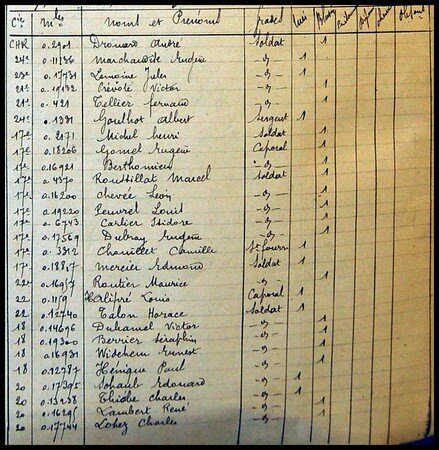 Cie Mles Nom et Prénoms Grades Tués Blessés
CHR 0.2901 Drouard André Soldat 1
24e 0.11136 Marchawitte Eugène -d- 1
23e 0.17431 Lemoine Jules -d- 1
21e 0.19132 Prévoté Victor -d- 1
21e 0.421 Tellier Fernand -d- 1
24e 0.1331 Goulhot Albert Sergent 1
17e 0.2171 Michel Henri Soldat 1
17e 0.18206 Gomel Eugène Caporal 1
17e 0.16921 Berthomieu -d- 1
17e 0.4370 Roussillat Marcel Soldat 1
17e 0.16200 Chevée Léon -d- 1
17e 0.19220 Peuvret Louis -d- 1
17e 0.6743 Cartier Isidore -d- 1
17e 0.17569 Dubray Eugène -d- 1
17e 0.3312 Chouillet Camille 1
17e 0.18817 Mercier Edmond Soldat 1
22e 0.16957 Routier Maurice -d- 1
22 0.1159 Halipré Louis Caporal 1
21 0.12740 Talon Horace Soldat 1
18 0.14696 Duhamel Victor -d- 1
18 0.19300 Derrier Séraphin -d- 1
18 0.16931 Widehem Ernest -d- 1
18 0.12787 Hénique Paul -d- 1
20 0.17395 Schaub Edouard -d- 1
20 0.13238 Thiobe Charles -d- 1
20 0.16295 Lambert René -d- 1
20 0.17744 Lohez Charles -d- 1